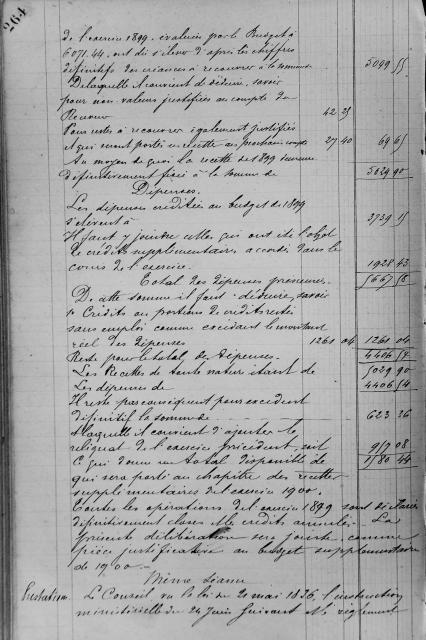 264
de l'exercice 1899 évaluées par le Budget à
6071.44 ont dû s'élever d'après les chiffres
définitifs des créances à recouvrer à la somme de 5099 55
De laquelle il convient de déduire, savoir
pour non valeurs justifiées au compte du
Receveur 42 25
Pour restes à recouvrer également justifiés
et qui seront portés en recette au prochain compte 27 40 69 65
Au moyen de quoi la recette de 1899 demeure
définitivement fixée à la somme de 5029 90
Dépenses.
Les dépenses créditées au budget de 1899
s'élèvent à 3739 15
Il faut y joindre celles qui ont été l'objet
de crédits supplémentaires accordés dans le
cours de l'exercice. 1928 43
Total des dépenses présumées 5667 58
De cette somme il faut déduire, savoir
1° Crédits ou portions de crédits restés
sans emploi comme excédant le montant
réel des dépenses 1261 04 1261 04
Reste pour le total des dépenses. 4406 54
Les Recettes de toute nature étant de 5029 90
Les dépenses de 4406 54
Il reste par conséquent pour excédent
définitif la somme de 623 36
A laquelle il convient d'ajouter le
reliquat de l'exercice précédent, soit 957 08
Ce qui donne un total disponible de 1580 44
qui sera porté au chapitre des recettes
supplémentaires de l'exercice 1900.
Toutes les opérations de l'exercice 1899 sont déclarées
définitivement closes et les crédits annulés. La
présente délibération sera jointe comme
pièce justificative au budget supplémentaire
de 1900.
Même séance
Prestation. Le Conseil vu la loi du 21 mai 1836, l'instruction
ministérielle du 24 Juin suivant et le règlement